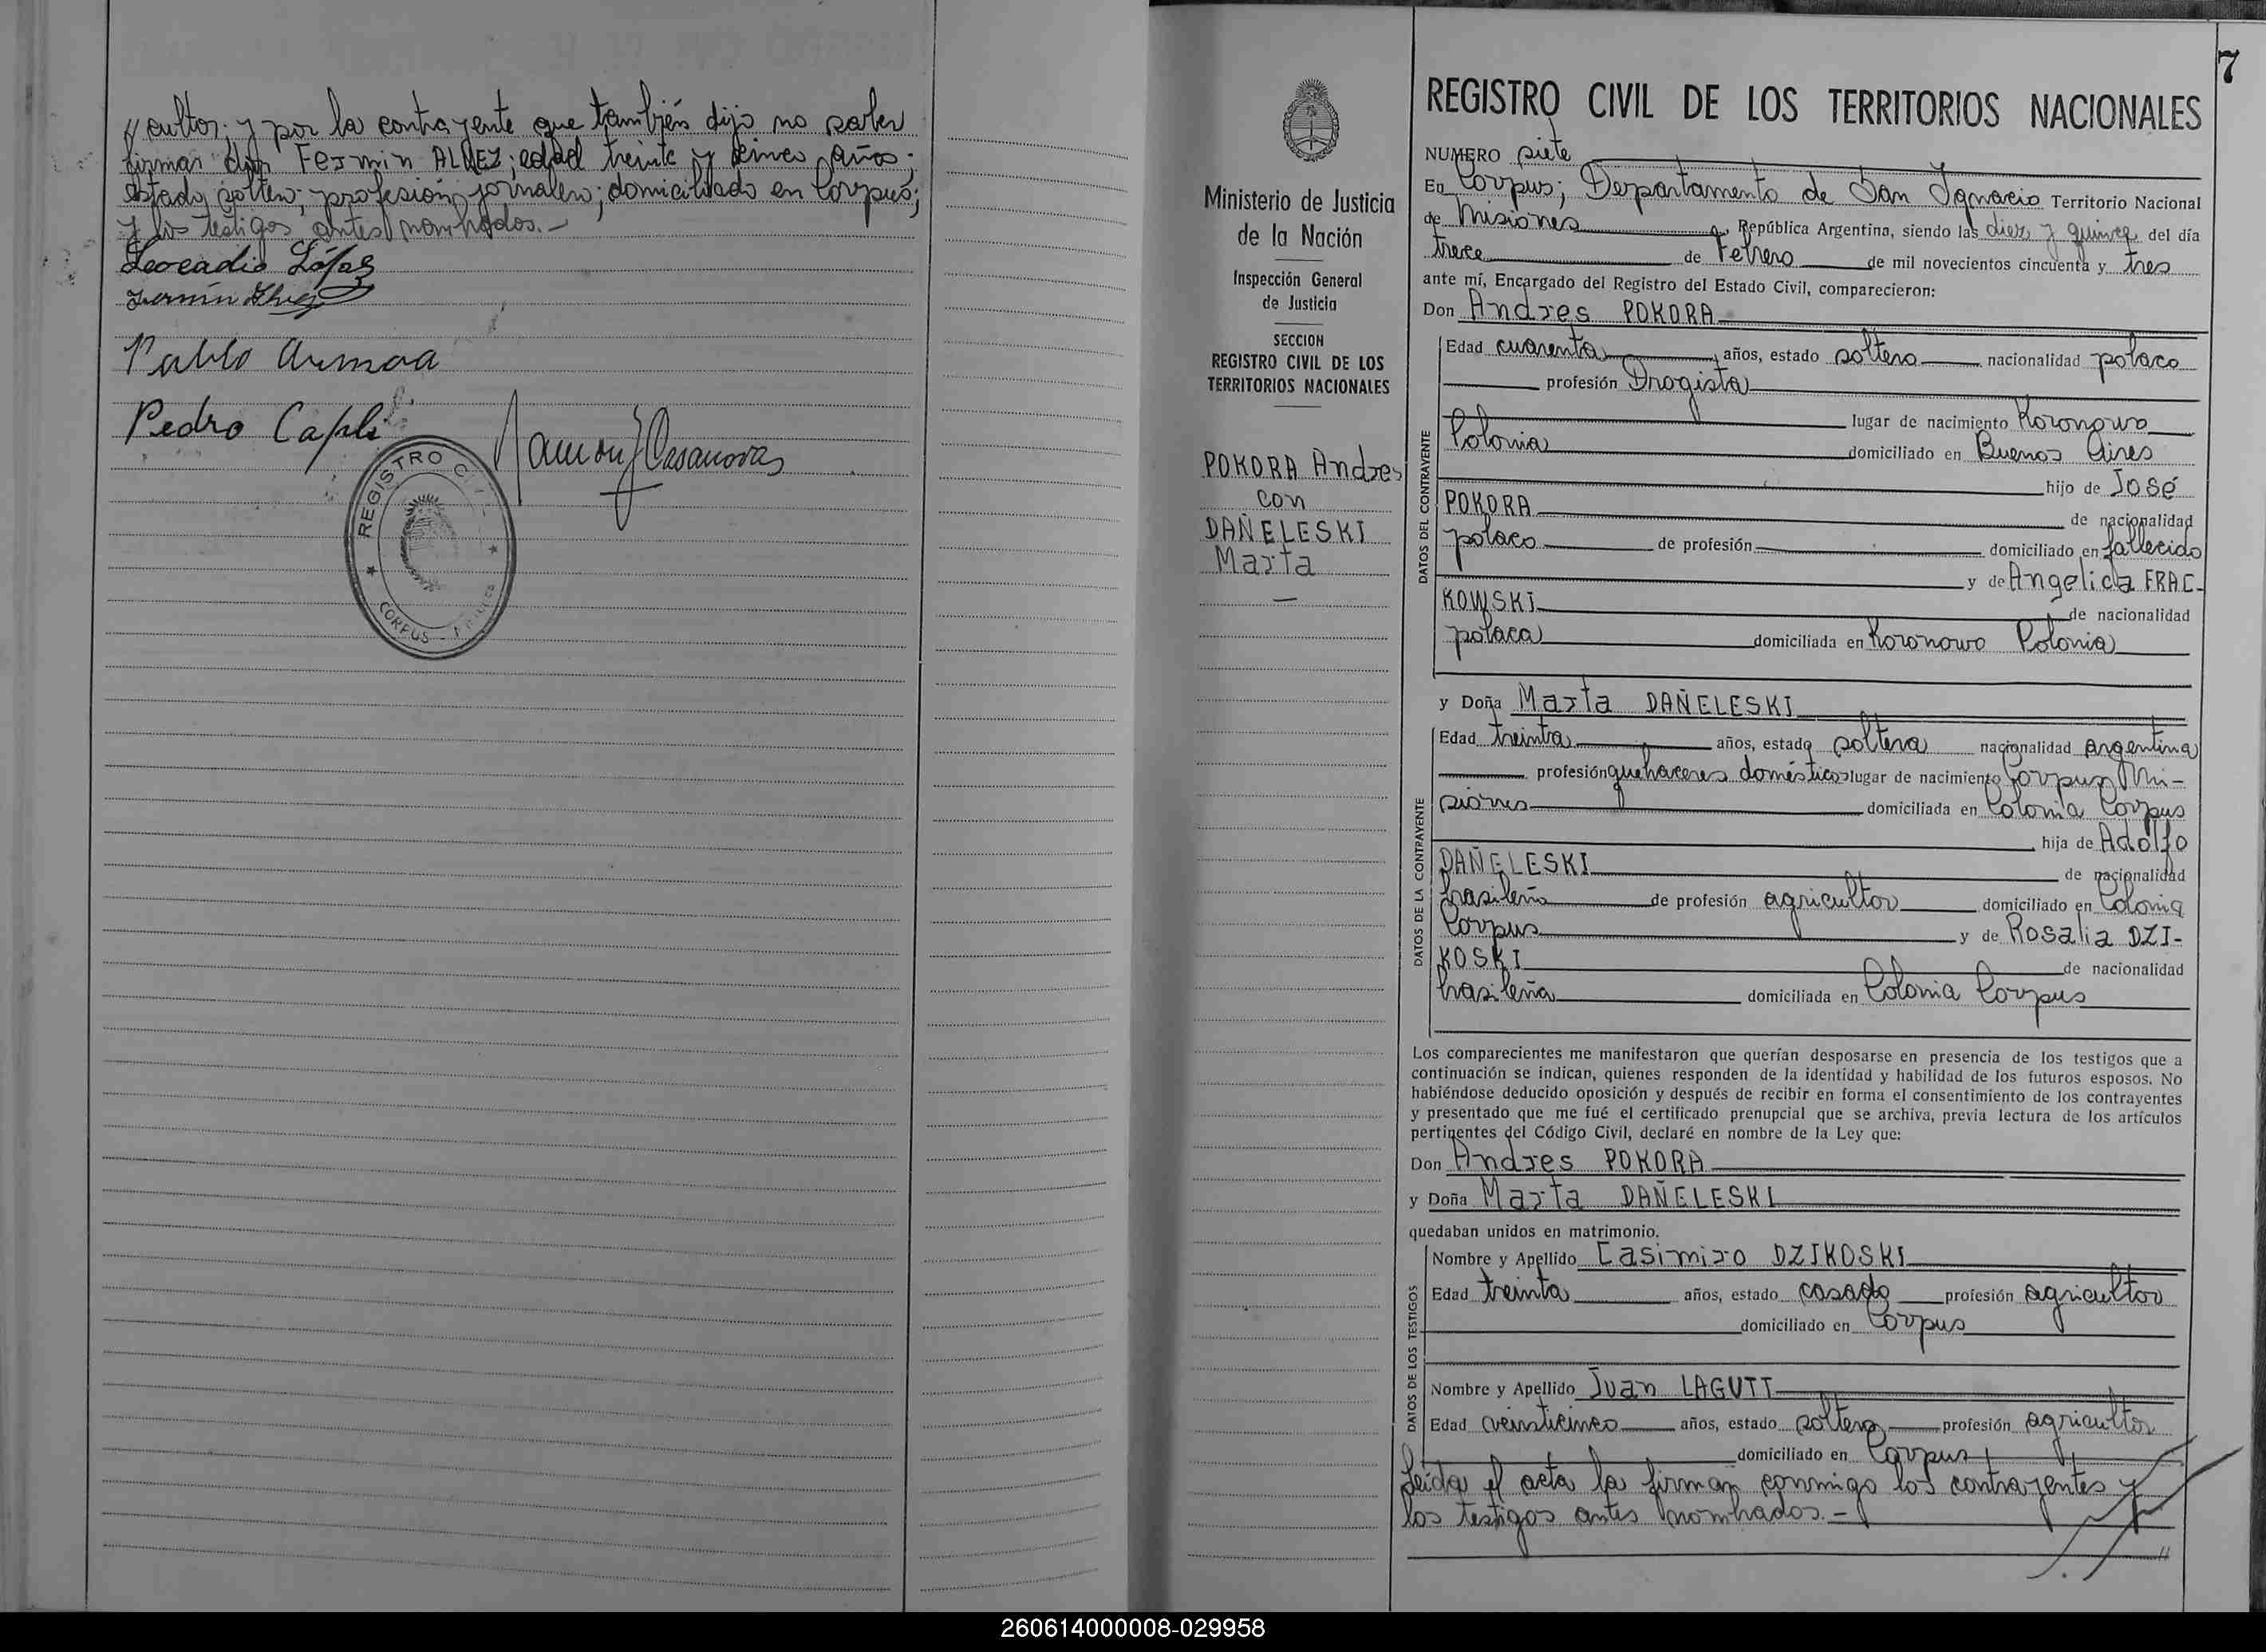 y cultor; y por la contrayente que también dijo no saber
firmar don Fermin ALVEZ; edad treinta y cinco años;
estado soltero; profesión jornalero; domiciliado en Corpus;
y los testigos antes nombrados.-
Leocadio López
Fermín Alvez
Pablo Armoa
Pedro Capli
Ramon J Casanovas
REGISTRO CIVIL
CORPUS
7
Ministerio de Justicia
de la Nación
Inspección General
de Justicia
SECCION
REGISTRO CIVIL DE LOS
TERRITORIOS NACIONALES
POKORA Andres
con
DAÑELESKI
Marta
—
REGISTRO CIVIL DE LOS TERRITORIOS NACIONALES
NUMERO siete
En Corpus; Departamento de San Ignacio Territorio Nacional
de Misiones, República Argentina, siendo las diez y quince del día
trece de Febrero de mil novecientos cincuenta y tres
ante mí, Encargado del Registro del Estado Civil, comparecieron:
Don Andres POKORA
DATOS DEL CONTRAYENTE
Edad cuarenta años, estado soltero nacionalidad polaco
profesión Drogista
lugar de nacimiento Koronowo
Polonia domiciliado en Buenos Aires
hijo de José
POKORA de nacionalidad
polaco de profesión domiciliado en fallecido
y de Angelica FRAC-
KOWSKI de nacionalidad
polaca domiciliada en Koronowo Polonia
y Doña Marta DAÑELESKI
DATOS DE LA CONTRAYENTE
Edad treinta años, estado soltera nacionalidad argentina
profesión quehaceres domésticos lugar de nacimiento Corpus Mi-
siones domiciliada en Colonia Corpus
hija de Adolfo
DAÑELESKI de nacionalidad
brasileña de profesión agricultor domiciliado en Colonia
Corpus y de Rosalia DZI-
KOSKI de nacionalidad
brasileña domiciliada en Colonia Corpus
Los comparecientes me manifestaron que querían desposarse en presencia de los testigos que a
continuación se indican, quienes responden de la identidad y habilidad de los futuros esposos. No
habiéndose deducido oposición y después de recibir en forma el consentimiento de los contrayentes
y presentado que me fué el certificado prenupcial que se archiva, previa lectura de los artículos
pertinentes del Código Civil, declaré en nombre de la Ley que:
Don Andres POKORA
y Doña Marta DAÑELESKI
quedaban unidos en matrimonio.
DATOS DE LOS TESTIGOS
Nombre y Apellido Casimiro DZIKOSKI
Edad treinta años, estado casado profesión agricultor
domiciliado en Corpus
Nombre y Apellido Juan LAGUTT
Edad veinticinco años, estado soltero profesión agricultor
domiciliado en Corpus
Leida el acta la firman conmigo los contrayentes y
los testigos antes nombrados.-
//
260614000008-029958